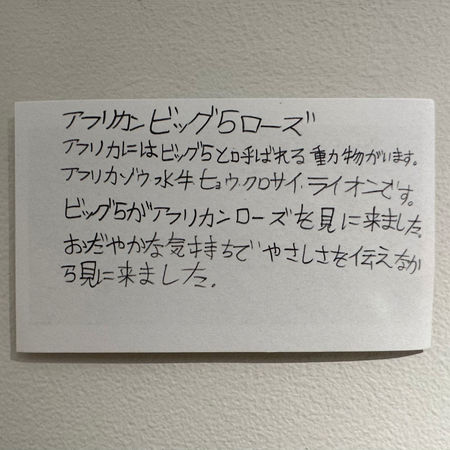 アフリカンビッグ5ローズ
アフリカにはビッグ5と呼ばれる動物がいます。
アフリカゾウ、水牛、ヒョウ、クロサイ、ライオンです。
ビッグ5がアフリカンローズを見に来ました。
おだやかな気持ちでやさしさを伝えなが
ら見に来ました。